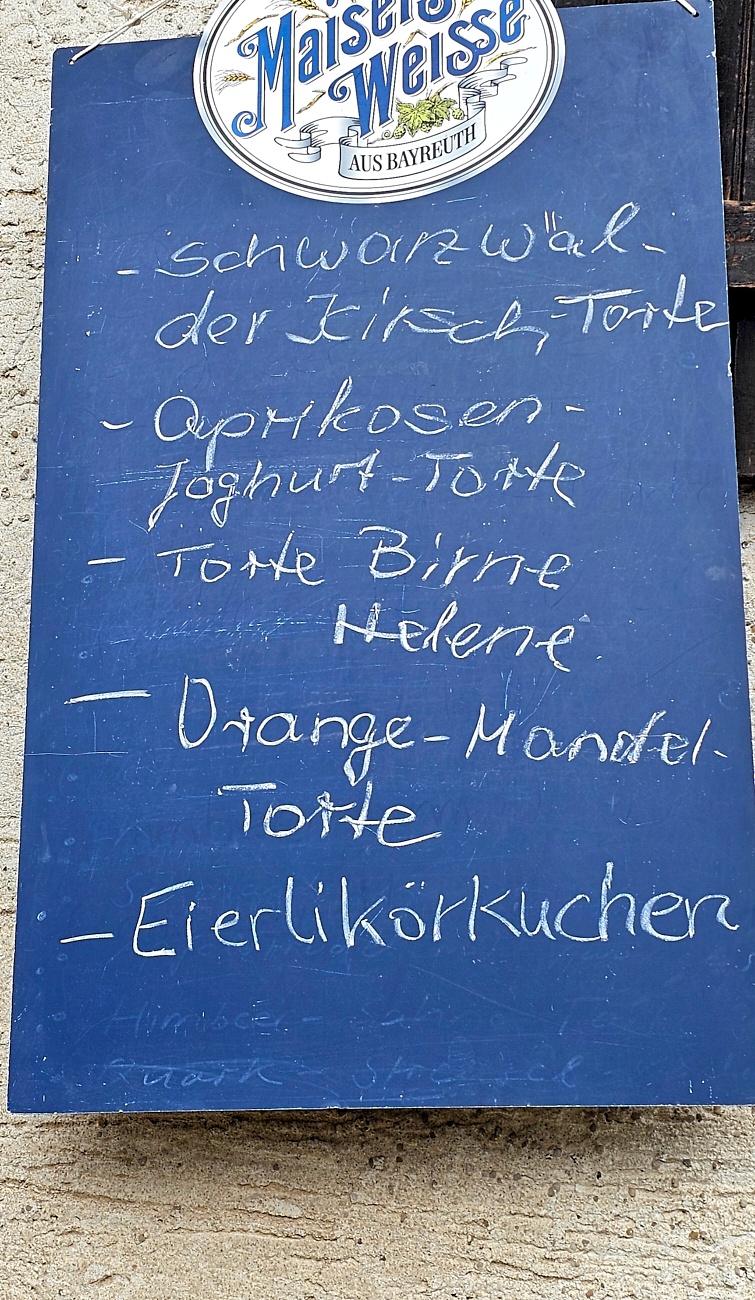 Maisel's
Weisse
AUS BAYREUTH
- Schwarzwäl-
der Kirsch-Torte
- Aprikosen-
Joghurt-Torte
- Torte Birne
Helene
- Orange-Mandel-
Torte
- Eierlikörkuchen
Himbeer - Sahne
Quark - Streusel